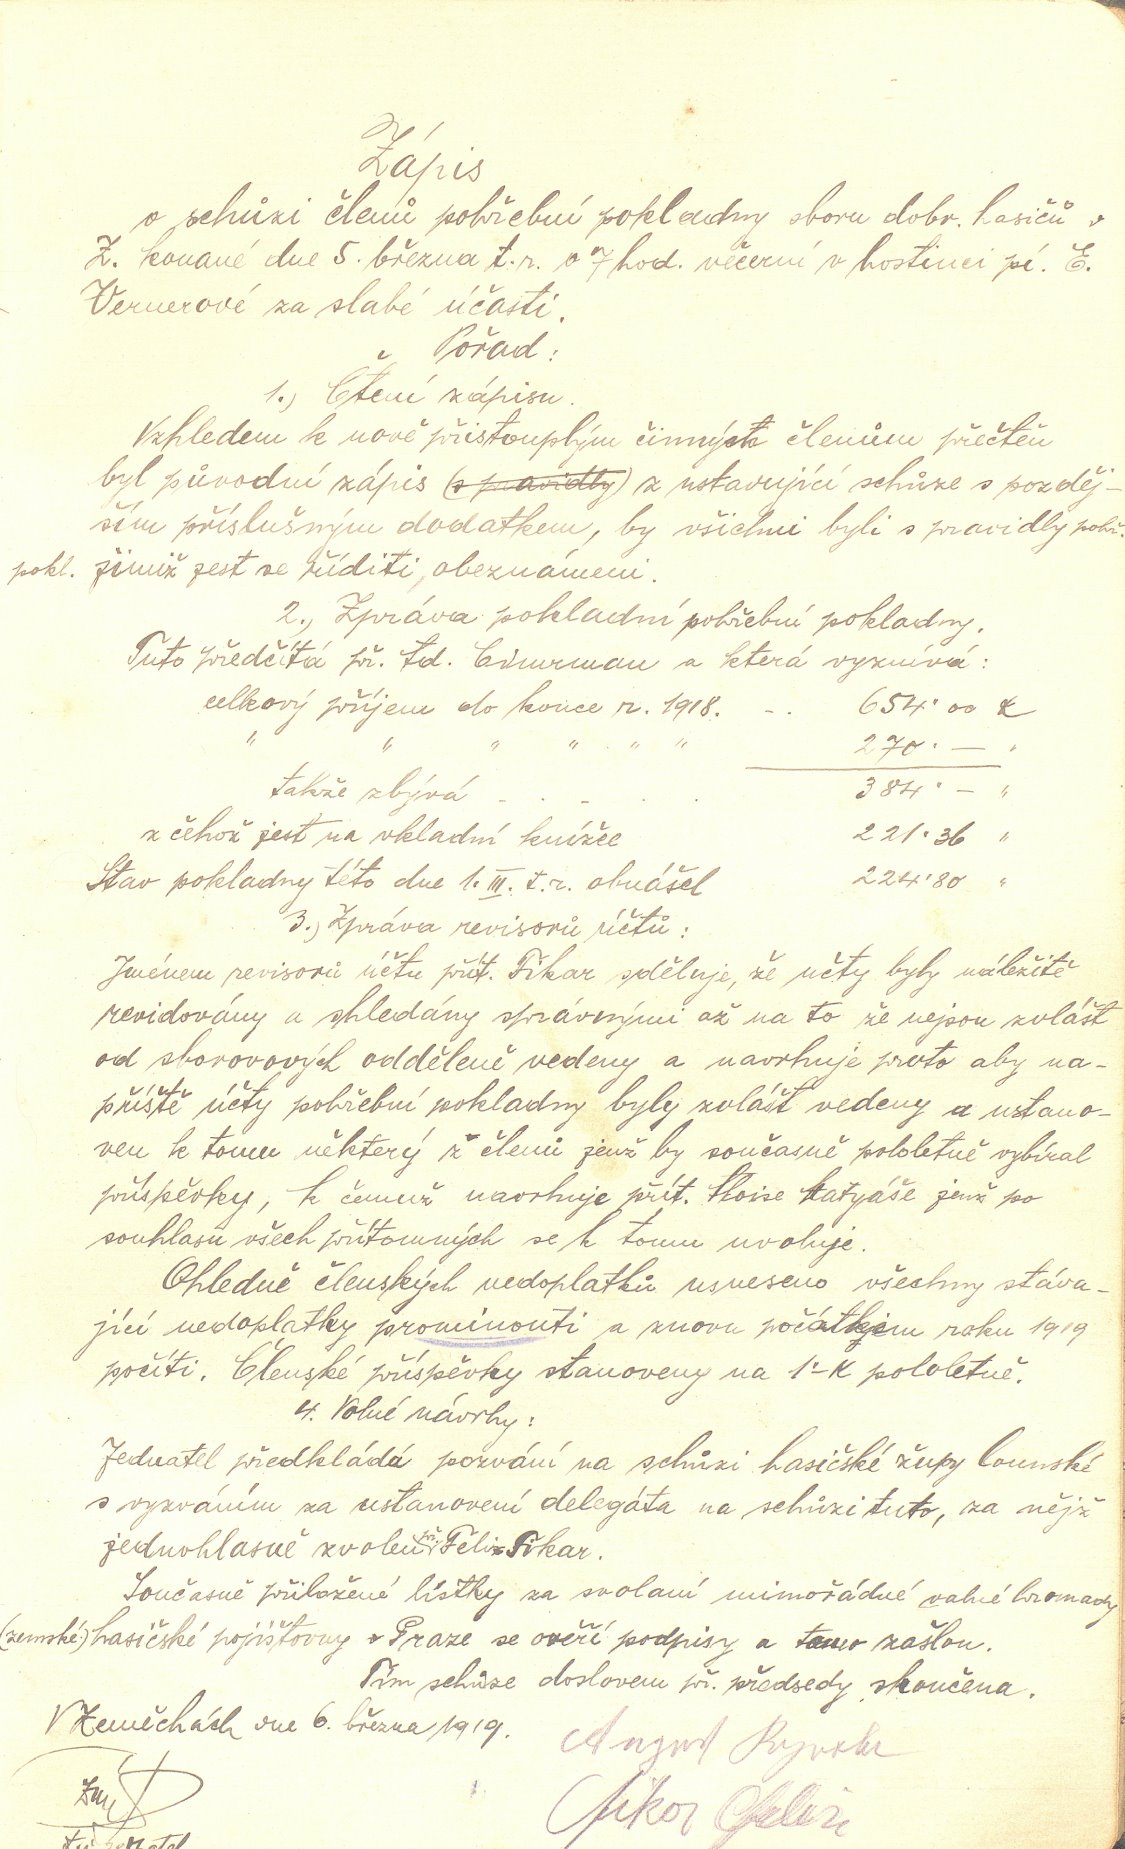 Zápis
o schůzi členů pohřební pokladny sboru dobr. hasičů v
Z. konané dne 5. března t. r. o 7 hod. večerní v hostinci pí. E.
Vernerové za slabé účasti.
Pořad:
1.) Čtení zápisu.
Vzhledem k nově přistouplým činných členům přečten
byl původní zápis (s pravidly) z ustavující schůze s pozděj-
ším příslušným dodatkem, by všichni byli s pravidly pohř.
pokl. jimiž jest se říditi, obeznámeni.
2.) Zpráva pokladní pohřební pokladny.
Tuto předčítá př. td. Cimrman a která vyznívá:
celkový příjem do konce r. 1918. - .. 654·00 K
" " " " " " 270·— "
takže zbývá - . - . . 384·— "
z čehož jest na vkladní knížce 221·36 "
Stav pokladny této dne 1. III. t. r. obnášel 224·80 "
3.) Zpráva revisorů účtů:
Jménem revisorů účtu přít. Fikar sděluje, že účty byly náležitě
revidovány a shledány správnými až na to že nejsou zvlášt
od sborovových odděleně vedeny a navrhuje proto aby na-
příště účty pohřební pokladny byly zvlášt vedeny a ustano-
ven k tomu některý z členů jenž by současně pololetně vybíral
příspěvky, k čemuž navrhuje přít. Aloise Matyáše jenž po
souhlasu všech přítomných se k tomu uvoluje.
Ohledně členských nedoplatků usneseno všechny stáva-
jící nedoplatky prominouti a znovu počátkem roku 1919
počíti. Členské příspěvky stanoveny na 1·- K pololetně.
4. Volné návrhy:
Jednatel předkládá pozvání na schůzi hasičské župy lounské
s vyzváním za ustanovení delegáta na schůzi tuto, za nějž
jednohlasně zvolen př. Felix Fikar.
Současně přiložené lístky za svolaní mimořádné valné hromady
(zemské) hasičské pojišťovny v Praze se ověří podpisy a tamo zašlou.
Tím schůze doslovem př. předsedy skončena.
V Zeměchách dne 6. března 1919.
Fikar Felix